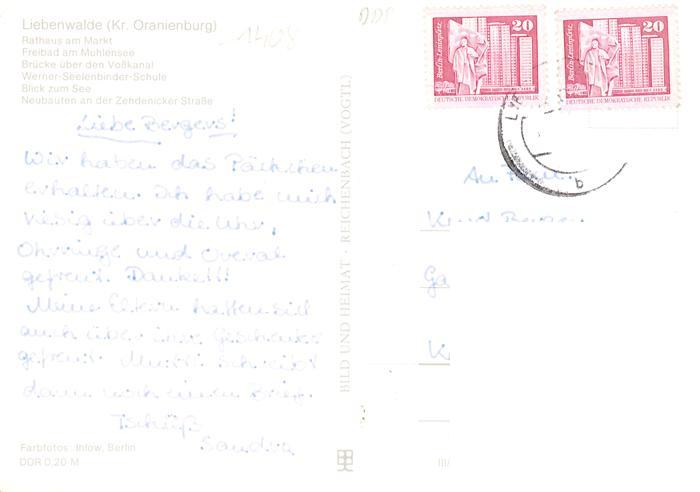 Liebenwalde (Kr. Oranienburg)
Rathaus am Markt
Freibad am Mühlensee
Brücke über den Voßkanal
Werner-Seelenbinder-Schule
Blick zum See
Neubauten an der Zehdenicker Straße
1408
DDR
Liebe Bergers!
Wir haben das Päckchen
erhalten. Ich habe mich
riesig über die Uhr,
Ohrringe und Overal
gefreut. Danke!!!
Meine Eltern hatten sich
auch über ihre Geschenke
gefreut. Mutti schreibt
dann noch einen Brief.
Tschüß
Sandra
Farbfotos: Ihlow, Berlin
DDR 0,20 M
BILD UND HEIMAT · REICHENBACH (VOGTL)
III/
Berlin-Leninplatz
20
DEUTSCHE DEMOKRATISCHE REPUBLIK
Berlin-Leninplatz
20
DEUTSCHE DEMOKRATISCHE REPUBLIK
b
An Fam.
Ga
K